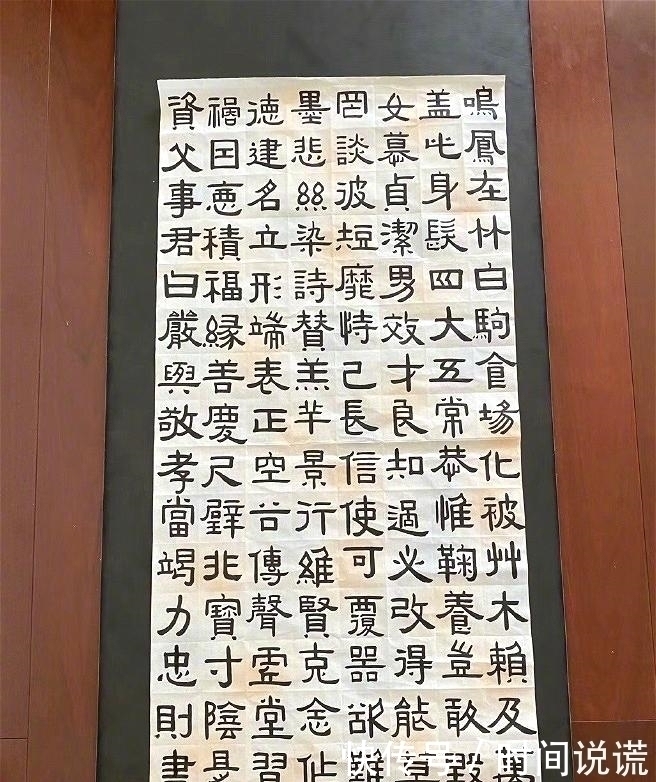 鳴鳳在竹白駒食場化被艸木賴及萬
盖此身髮四大五常恭惟鞠養豈敢毀
女慕貞潔男效才良知過必改得能
罔談彼短靡恃己長信使可覆器欲難
墨悲絲染詩賛羔羊景行維賢克念作
德建名立形端表正空谷傳聲虛堂習
禍因惡積福緣善慶尺璧非寶寸陰是
資父事君曰嚴與敬孝當竭力忠則盡
快传号/时间说谎